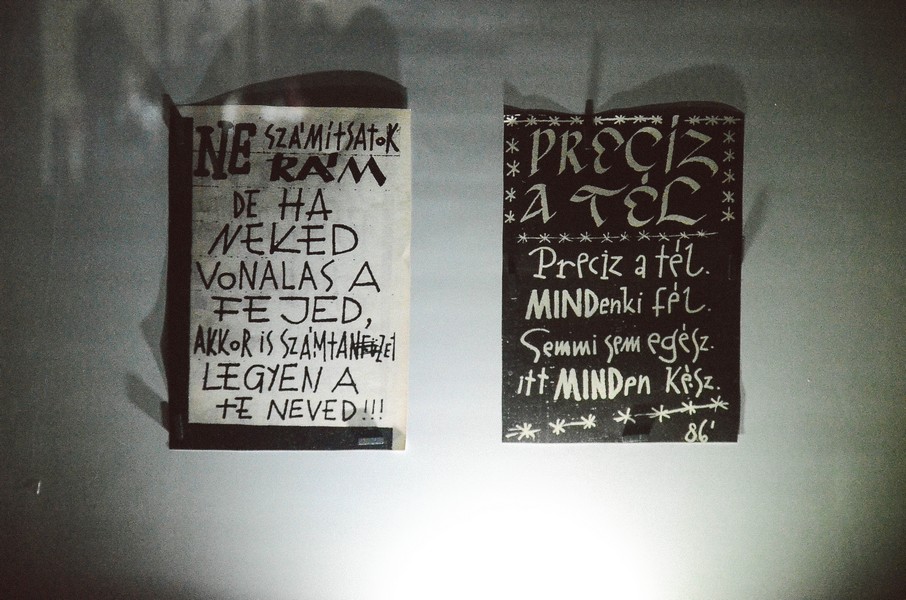 NE SZÁMÍTSATOK
RÁM
DE HA
NEKED
VONALAS A
FEJED,
AKKOR IS SZÁMTAN
LEGYEN A
TE NEVED!!!
PRECÍZ
A TÉL
Precíz a tél.
MINDenki fél.
Semmi sem egész.
itt MINDen kész.
86'